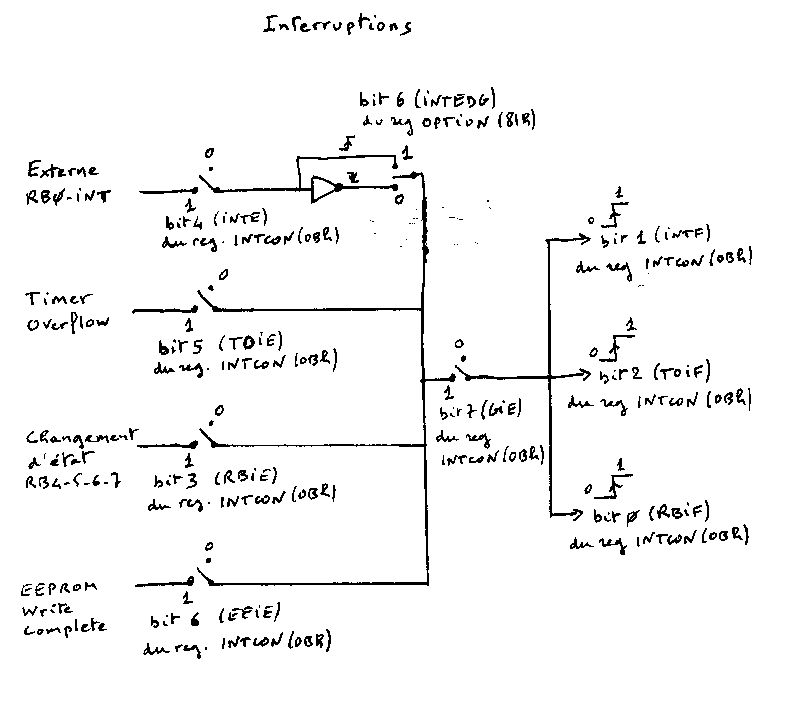 Interruptions
bit 6 (INTEDG)
du reg OPTION (81h)
Externe
RBØ-INT
0
1
bit 4 (INTE)
du reg. INTCON (0Bh)
1
0
Timer
Overflow
0
1
bit 5 (TOIE)
du reg. INTCON (0Bh)
Changement
d'état
RB4-5-6-7
0
1
bit 3 (RBIE)
du reg. INTCON (0Bh)
EEPROM
Write
Complete
0
1
bit 6 (EEIE)
du reg. INTCON (0Bh)
0
1
bit 7 (GIE)
du reg
INTCON (0Bh)
0 1
bit 1 (INTF)
du reg INTCON (0Bh)
0 1
bit 2 (TOIF)
du reg INTCON (0Bh)
0 1
bit Ø (RBIF)
du reg INTCON (0Bh)